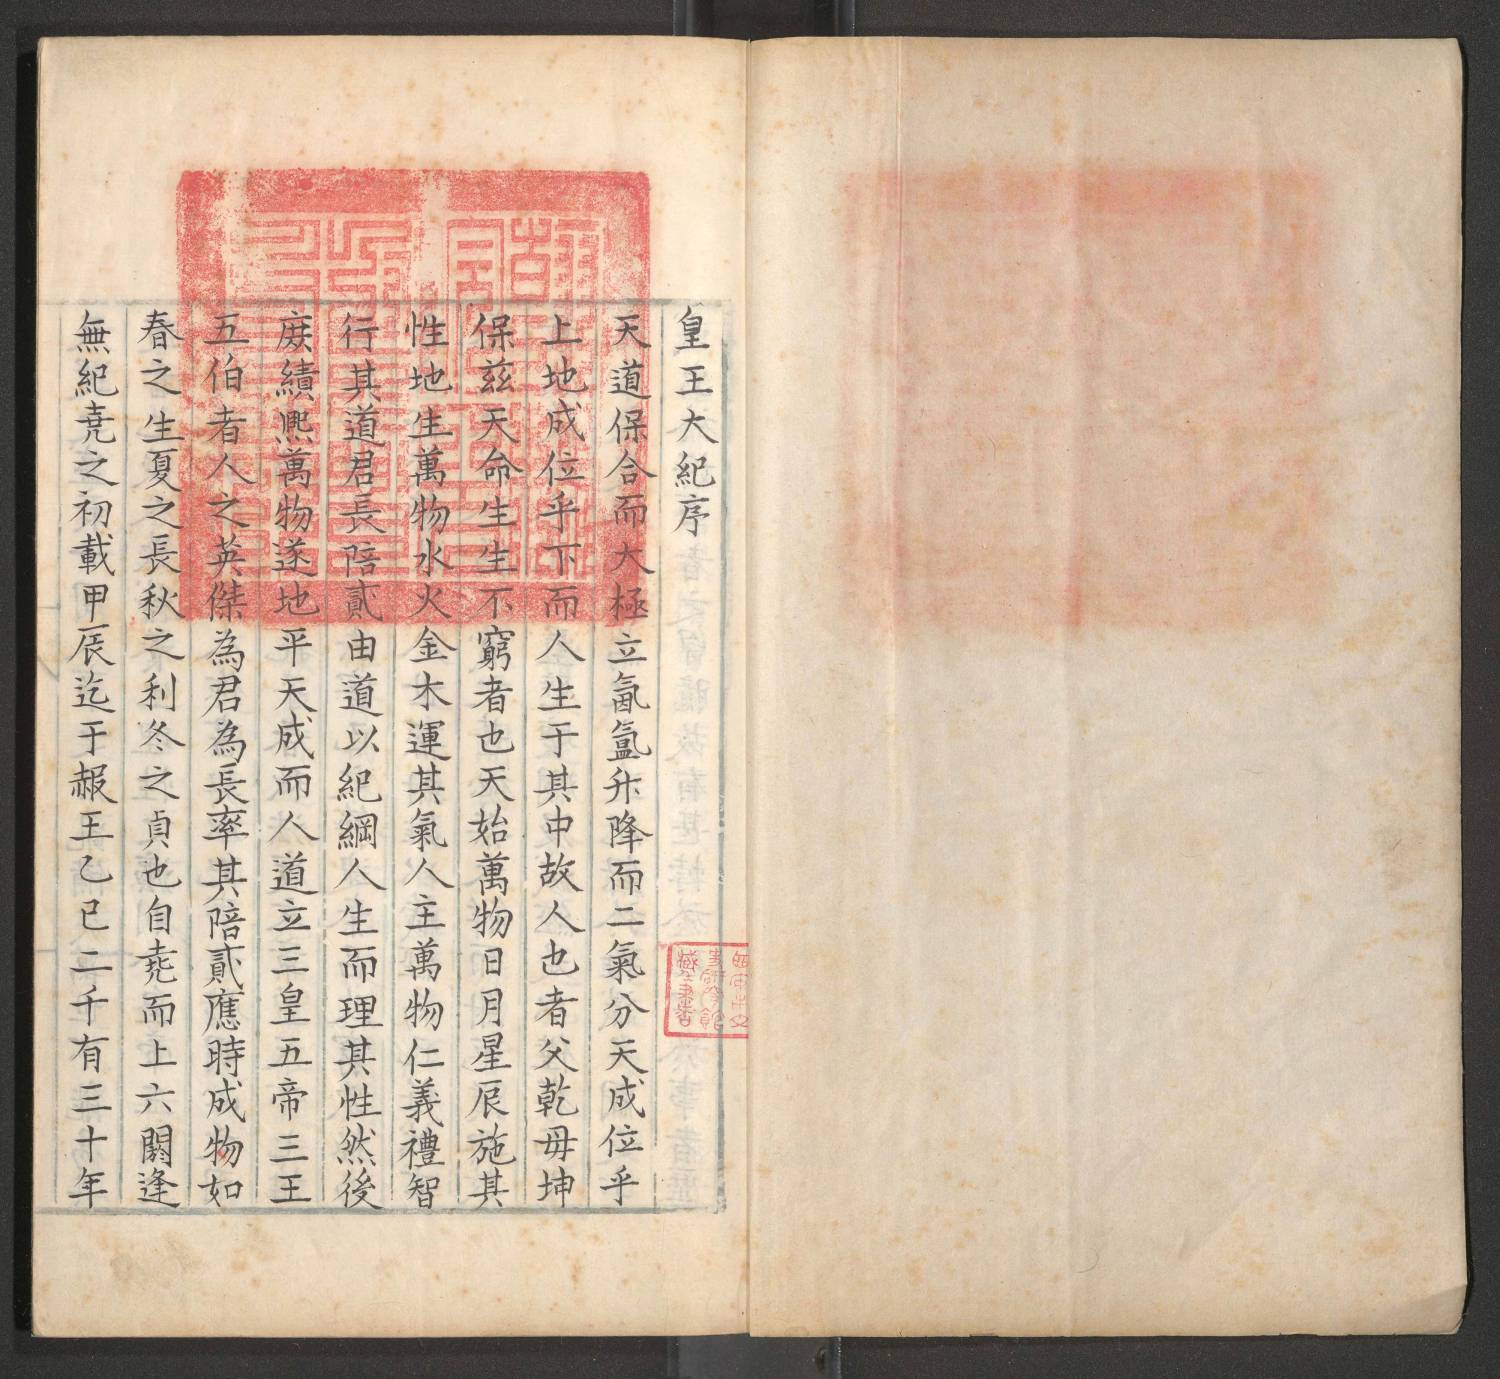 皇王大紀序
天道保合而大極立氤氳升降而二氣分天成位乎
上地成位乎下而人生于其中故人也者父乾毋坤
保兹天命生生不窮者也天始萬物日月星辰施其
性地生萬物水火金木運其氣人主萬物仁義禮智
行其道君長陪貳由道以紀綱人生而理其性然後
庶績熈萬物遂地平天成而人道立三皇五帝三王
五伯者人之英傑為君為長率其陪貳應時成物如
春之生夏之長秋之利冬之貞也自堯而上六閼逢
無紀堯之初載甲辰迄于赧王乙巳二千有三十年